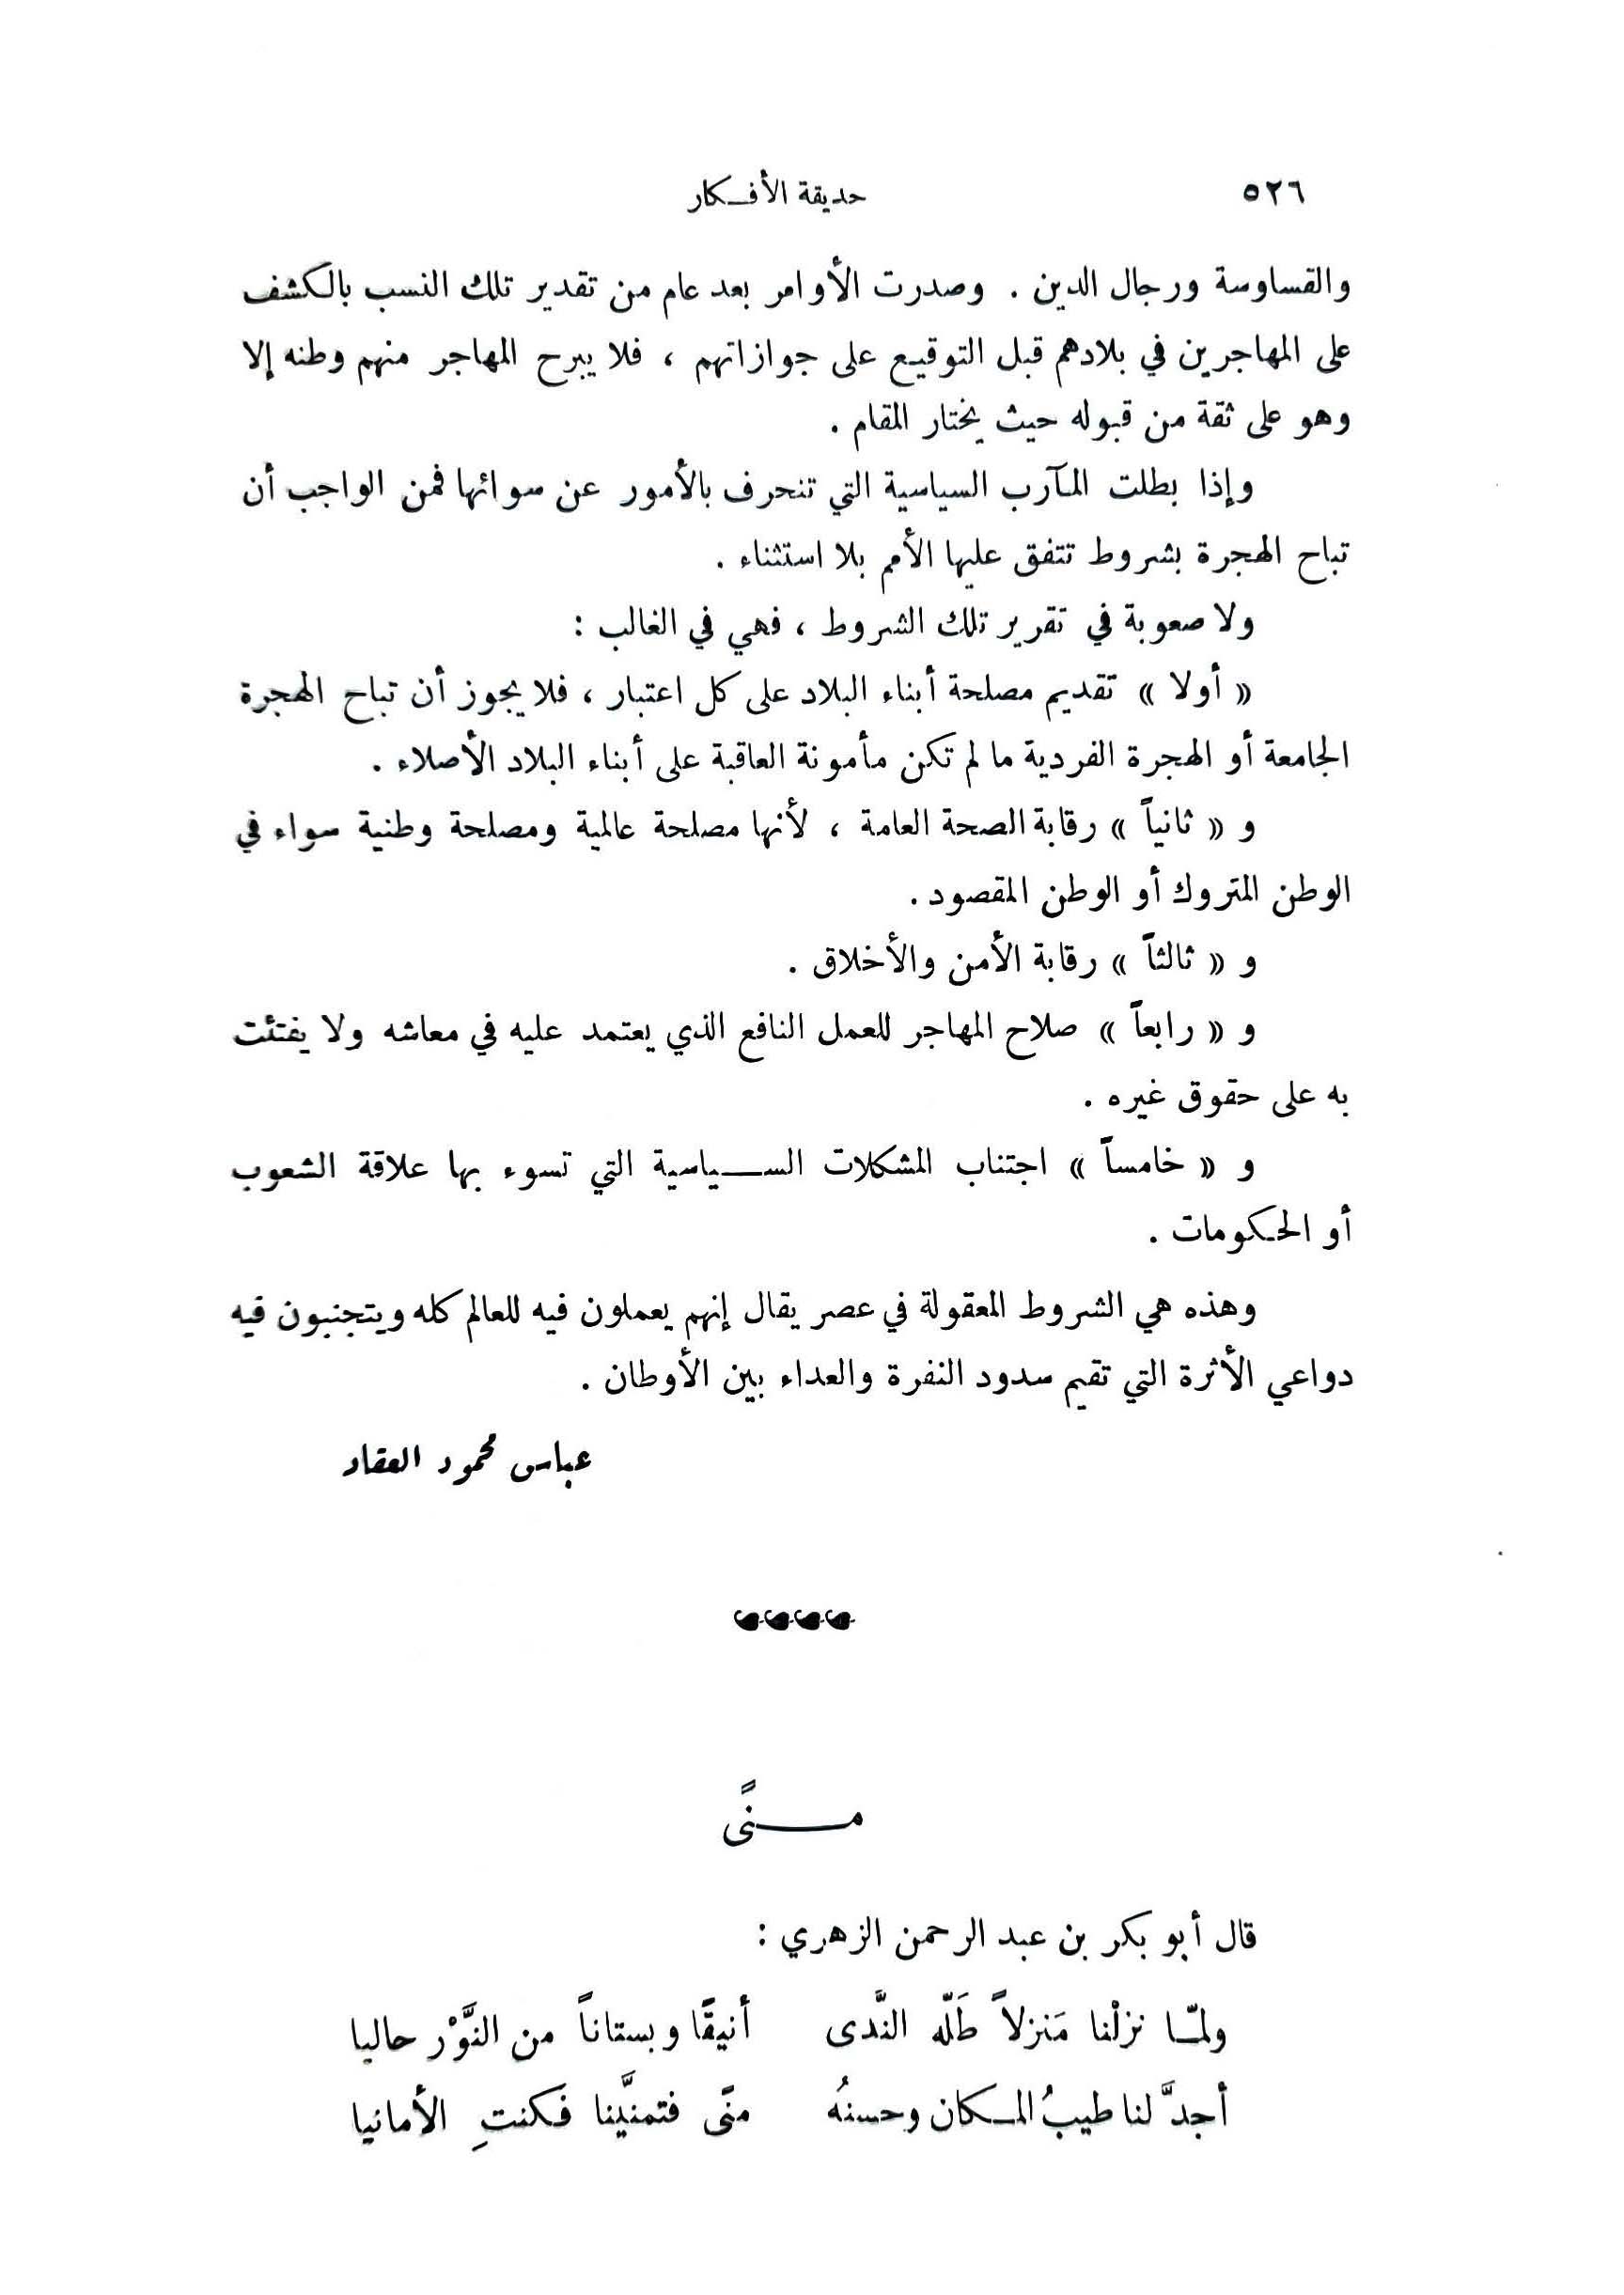 ٥٢٦
حديقة الأفكار
والقساوسة ورجال الدين . وصدرت الأوامر بعد عام من تقدير تلك النسب بالكشف
على المهاجرين في بلادهم قبل التوقيع على جوازاتهم ، فلا يبرح المهاجر منهم وطنه إلا
وهو على ثقة من قبوله حيث يختار المقام .
وإذا بطلت المآرب السياسية التي تنحرف بالأمور عن سوائها فمن الواجب أن
تباح الهجرة بشروط تتفق عليها الأمم بلا استثناء .
ولا صعوبة في تقرير تلك الشروط ، فهي في الغالب :
« أولا » تقديم مصلحة أبناء البلاد على كل اعتبار ، فلا يجوز أن تباح الهجرة
الجامعة أو الهجرة الفردية ما لم تكن مأمونة العاقبة على أبناء البلاد الأصلاء .
و « ثانياً » رقابة الصحة العامة ، لأنها مصلحة عالمية ومصلحة وطنية سواء في
الوطن المتروك أو الوطن المقصود .
و « ثالثاً » رقابة الأمن والأخلاق .
و « رابعاً » صلاح المهاجر للعمل النافع الذي يعتمد عليه في معاشه ولا يفتئت
به على حقوق غيره .
و « خامساً » اجتناب المشكلات السـياسية التي تسوء بها علاقة الشعوب
أو الحكومات .
وهذه هي الشروط المعقولة في عصر يقال إنهم يعملون فيه للعالم كله ويتجنبون فيه
دواعي الأثرة التي تقيم سدود النفرة والعداء بين الأوطان .
عباس محمود العقاد
مـنًى
قال أبو بكر بن عبد الرحمن الزهري :
ولمّا نزلْنا مَنزلاً طَلّه النَّدى أنيقًا وبستاناً من النَّوْر حاليا
أجدَّ لنا طيبُ المكان وحسنهُ منًى فتمنَّينا فكنتِ الأمانيا